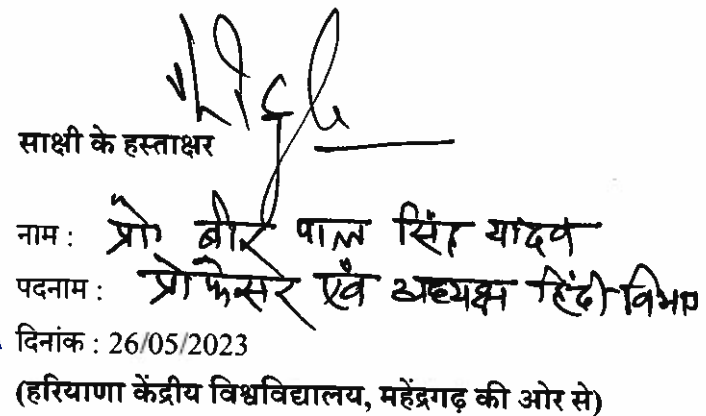 साक्षी के हस्ताक्षर
नाम : प्रो० बीर पाल सिंह यादव
पदनाम : प्रोफेसर एवं अध्यक्ष हिंदी विभाग
दिनांक : 26/05/2023
(हरियाणा केंद्रीय विश्वविद्यालय, महेंद्रगढ़ की ओर से)